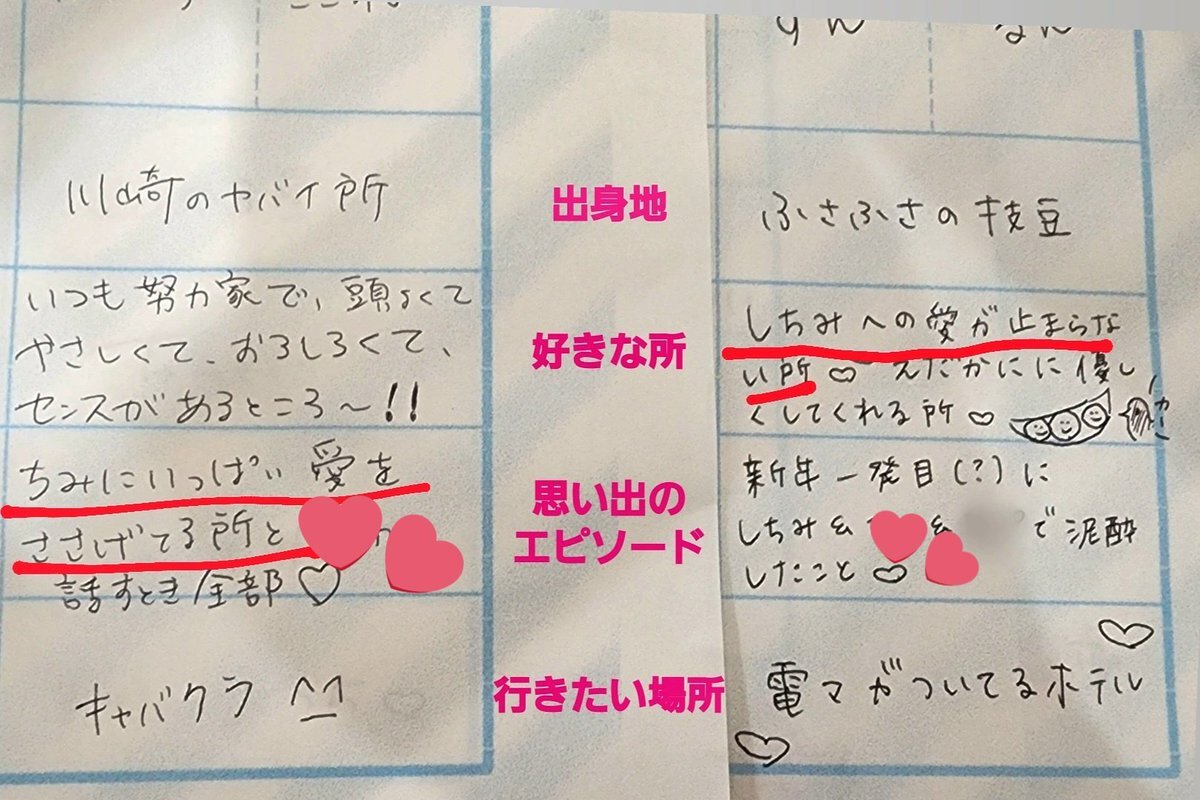 すん なん
川崎のヤバイ所
出身地
ふさふさの枝豆
いつも努力家で、頭よくて
やさしくて、おもしろくて、
センスがあるところ〜!!
好きな所
しちみへの愛が止まらな
い所♡ えだかにに優し
くしてくれる所♡
カニ
ちみにいっぱい愛を
ささげてる所と
話すとき全部♡
思い出の
エピソード
新年一発目(?)に
しちみ& & で泥酔
したこと♡
キャバクラ ^_^
行きたい場所
電マがついてるホテル